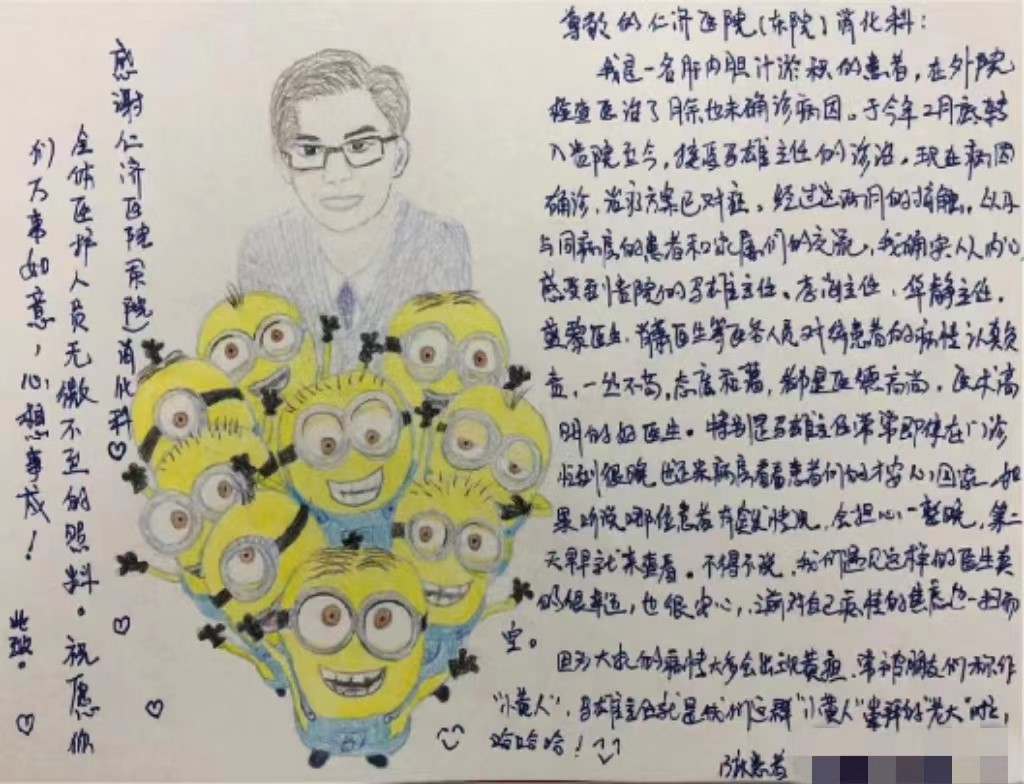 尊敬的仁济医院(东院)消化科：
我是一名肝内胆汁淤积的患者，在外院
检查医治了月余也未确诊病因。于今年2月底转
入贵院至今，接受马雄主任的诊治，现在病因
确诊，治疗方案已对症。经过这两月的接触，以及
与同病房的患者和家属们的交流，我确实从内心
感受到贵院的马雄主任、李海主任、华静主任、
黎医生、医生等医务人员对待患者的病情认真负
责，一丝不苟，态度和蔼，都是医德高尚，医术高
明的好医生。特别是马雄主任常常即使在门诊
忙到很晚，也还来病房看看患者们的才安心回家，如
果听说哪位患者有突发情况，会担心一整晚，第二
天早早就来查看。不得不说，我们遇见这样的医生真
的很幸运，也很安心，之前对自己病情的焦虑也一扫而
空。
因为大家的病情大多会出现黄疸，常被朋友们称作
“小黄人”，马雄主任就是我们这群“小黄人”崇拜的“老大”啦，
哈哈哈！
患者
感谢仁济医院(东院)消化科
全体医护人员无微不至的照料。祝愿你
们万事如意，心想事成！
此致。